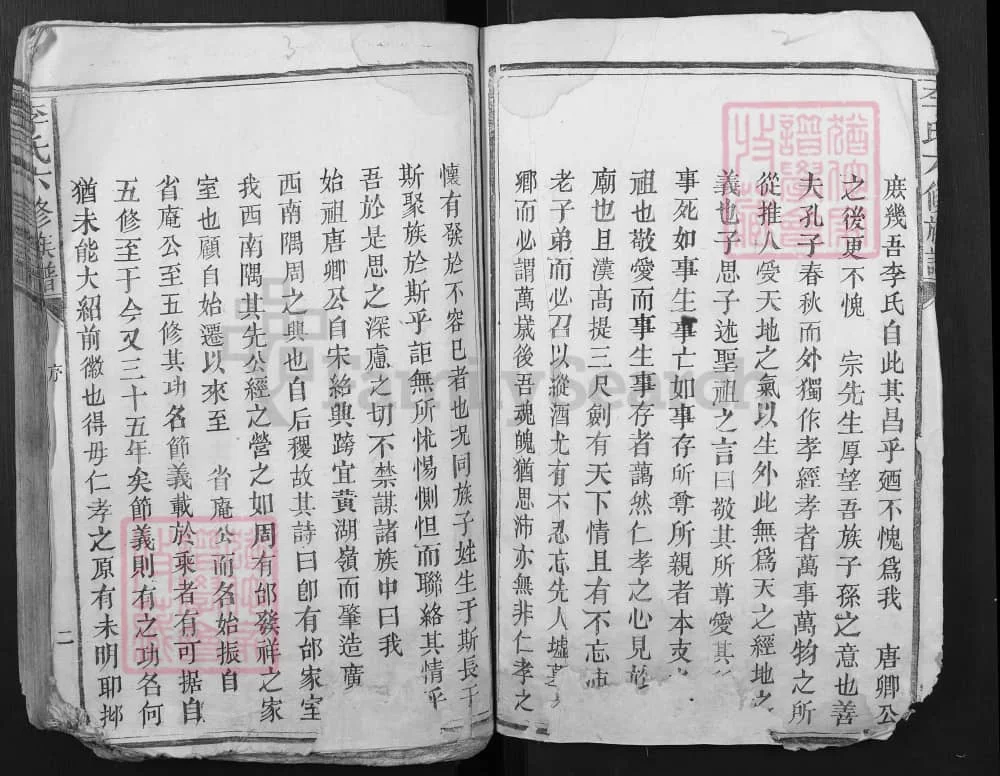 庶幾吾李氏自此其昌乎廼不愧爲我　唐卿公
之後更不愧　宗先生厚望吾族子孫之意也善
夫孔子春秋而外獨作孝經孝者萬事萬物之所
從推人受天地之氣以生外此無爲天之經地之
義也子思子述聖祖之言曰敬其所尊愛其
事死如事生事亡如事存所尊所親者本支
祖也敬愛而事生事存者藹然仁孝之心見於
廟也且漢高提三尺劍有天下情且有不忘沛
老子弟而必召以縱酒尤有不忍忘先人墟墓
鄉而必謂萬歲後吾魂魄猶思沛亦無非仁孝之
李氏六修族譜
懷有發於不容已者也况同族子姓生于斯長于
斯聚族於斯乎詎無所怵惕惻怛而聯絡其情乎
吾於是思之深慮之切不禁謀諸族中曰我
始祖唐卿公自宋紹興跨宜黃湖嶺而肇造廣
西南隅周之興也自后稷故其詩曰卽有邰家室
我西南隅其先公經之營之如周有邰發祥之家
室也顧自始遷以來至　省庵公而名始振自
省庵公至五修其功名節義載於乘者有可据自
五修至于今又三十五年矣節義則有之功名何
猶未能大紹前徽也得毋仁孝之原有未明耶抑
李氏六修族譜
序
二
3
2
FamilySearch